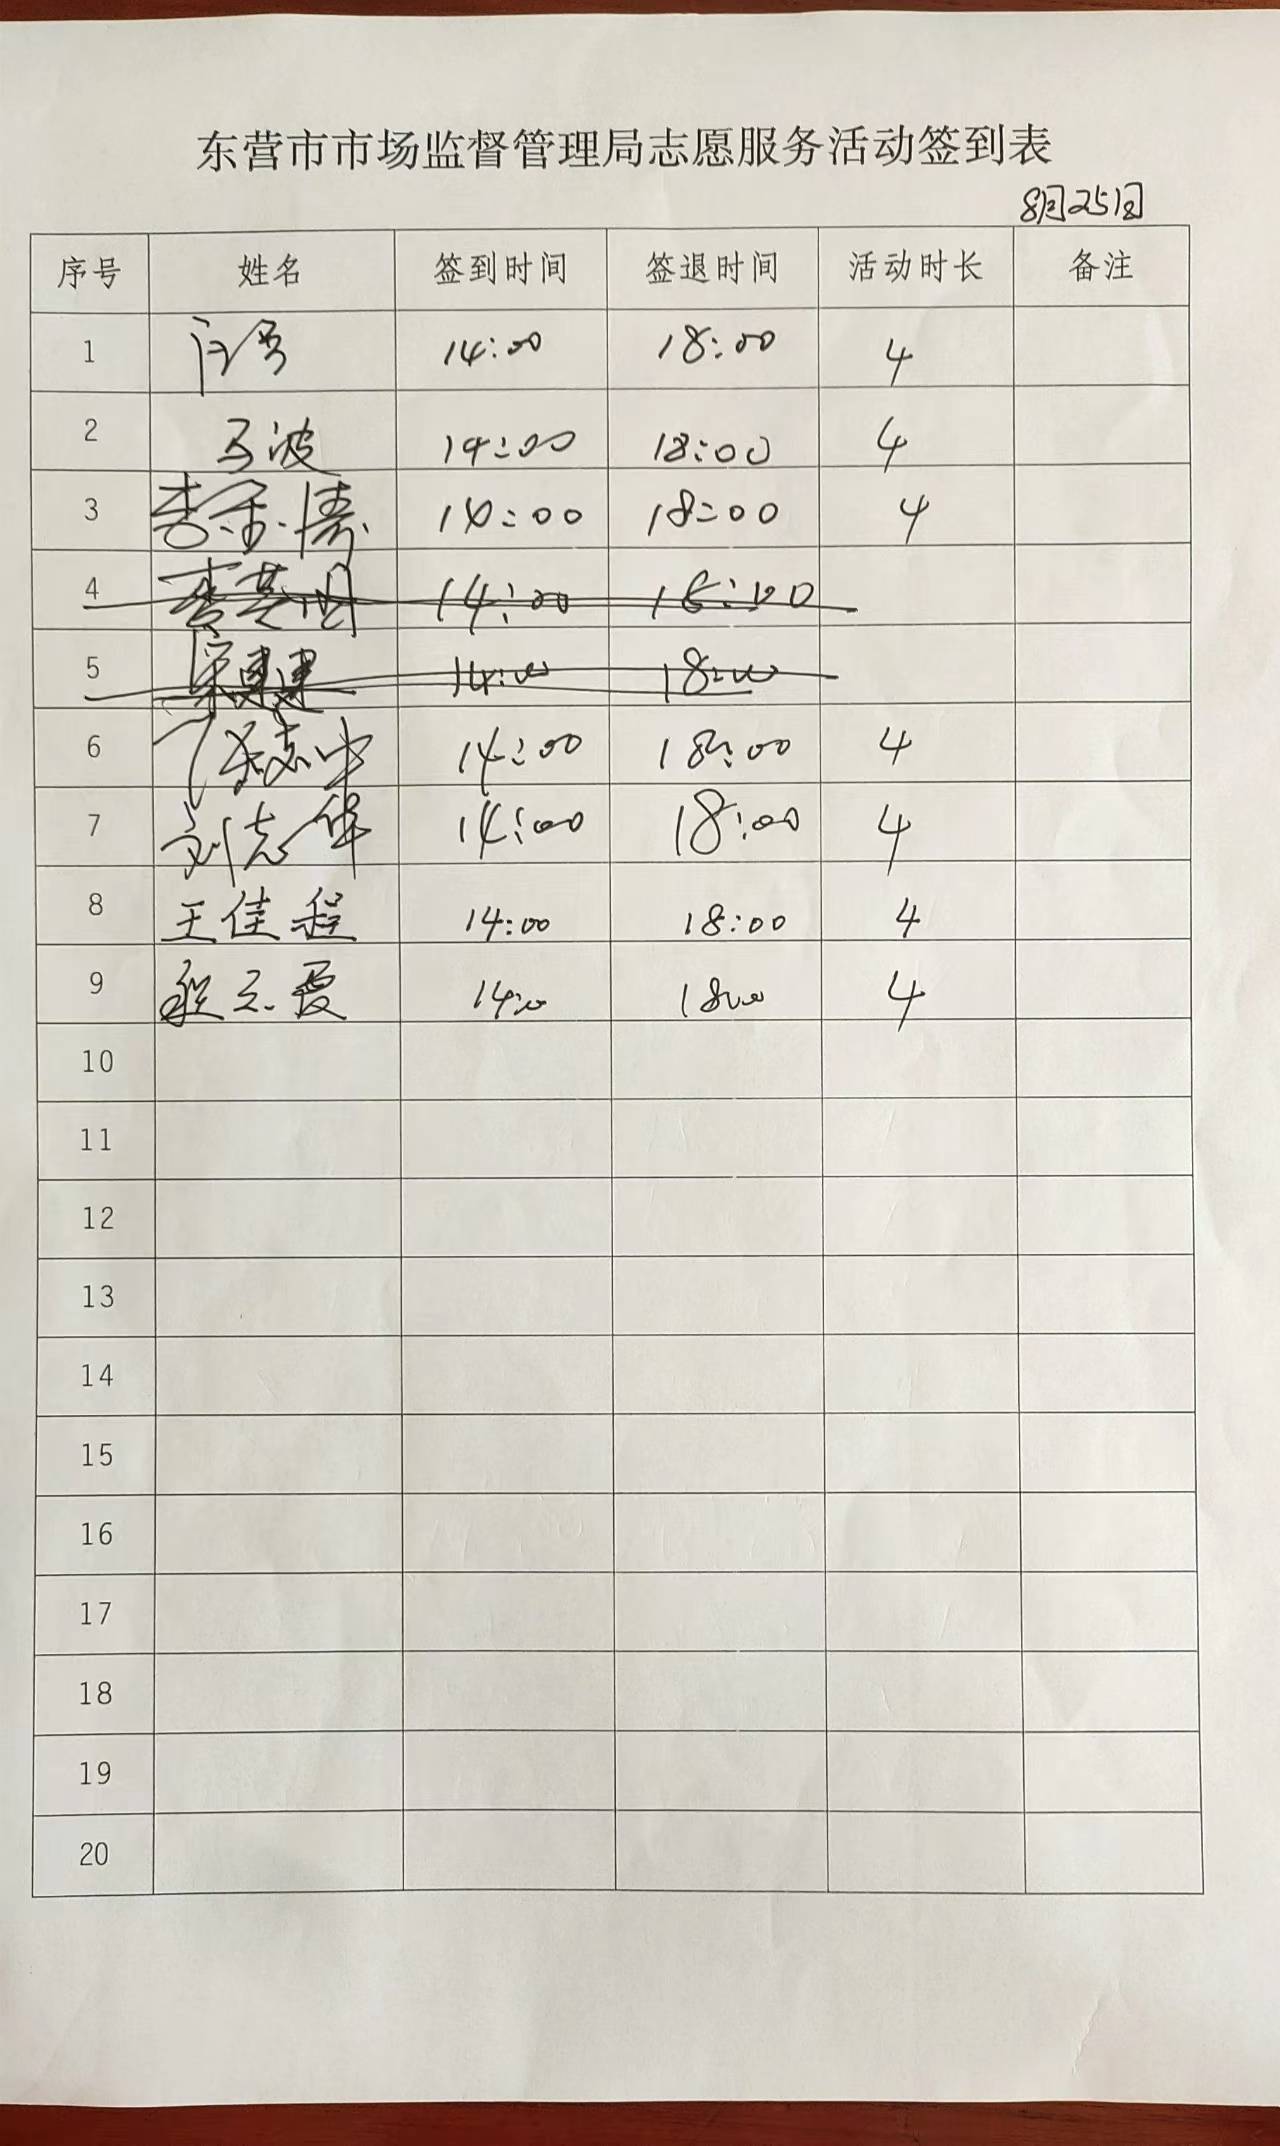 东营市市场监督管理局志愿服务活动签到表
8月25日
序号 姓名 签到时间 签退时间 活动时长 备注
1 14:00 18:00 4
2 马波 14:00 18:00 4
3 14:00 18:00 4
4 14:00 18:00
5 14:00 18:00
6 14:00 18:00 4
7 刘志华 14:00 18:00 4
8 王佳程 14:00 18:00 4
9 14:00 18:00 4
10
11
12
13
14
15
16
17
18
19
20